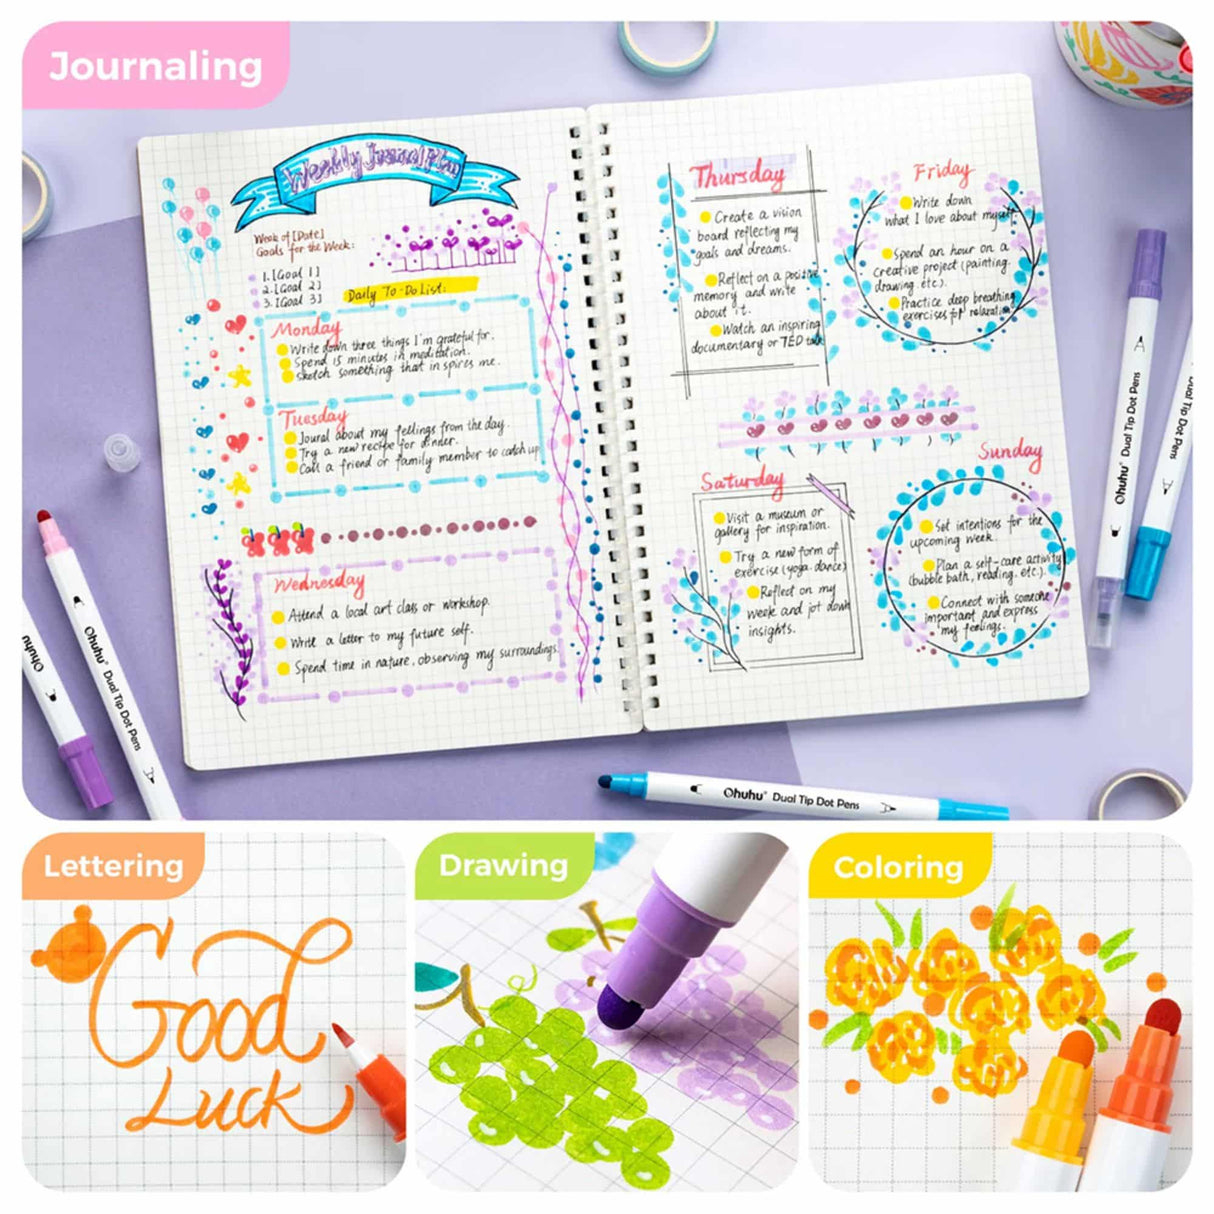 Journaling
Weekly Journal Plan
Week of [Date]
Goals for the Week:
1. [Goal 1]
2. [Goal 2]
3. [Goal 3]
Daily To-Do List:
Monday
Write down three things I'm grateful for.
Spend 15 minutes in meditation.
Sketch something that inspires me.
Tuesday
Joural about my feelings from the day.
Try a new recipe for dinner.
Call a friend or family member to catch up
Wednesday
Attend a local art class or workshop.
Write a letter to my future self.
Spend time in nature, observing my surroundings.
Thursday
Create a vision
board reflecting my
goals and dreams.
Reflect on a positive
memory and write
about it.
Watch an inspiring
documentary or TED talk
Friday
Write down
what I love about myself.
Spend an hour on a
creative project (painting.
drawing. etc.).
Practice deep breathing
exercises for relaxation
Saturday
Visit a museum or
gallery for inspiration.
Try a new form of
exercise (yoga. dance)
Reflect on my
week and jot down
insights.
Sunday
Set intentions for the
upcoming week.
Plan a self-care activity
(bubble bath, reading, etc.).
Connect with someone
important and express
my feelings.
Ohuhu
Ohuhu® Dual Tip Dot Pens
Ohuhu® Dual Tip Dot Pens
Ohuhu® Dual Tip Dot Pens
Dual Tip Dot Pens
Lettering
Good
Luck
Drawing
Coloring